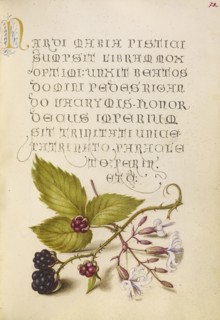 NARDI MARIA PISTICI
SUMPSIT LIBRAM MOX
OPTIMI: UNXIT BEATOS
DOMINI PEDES RIGAN
DO LACRYMIS. HONOR
DECUS IMPERIUM
SIT TRINITATI UNICE
PATRI NATO PARACLE
TO PER IN.
ETC.